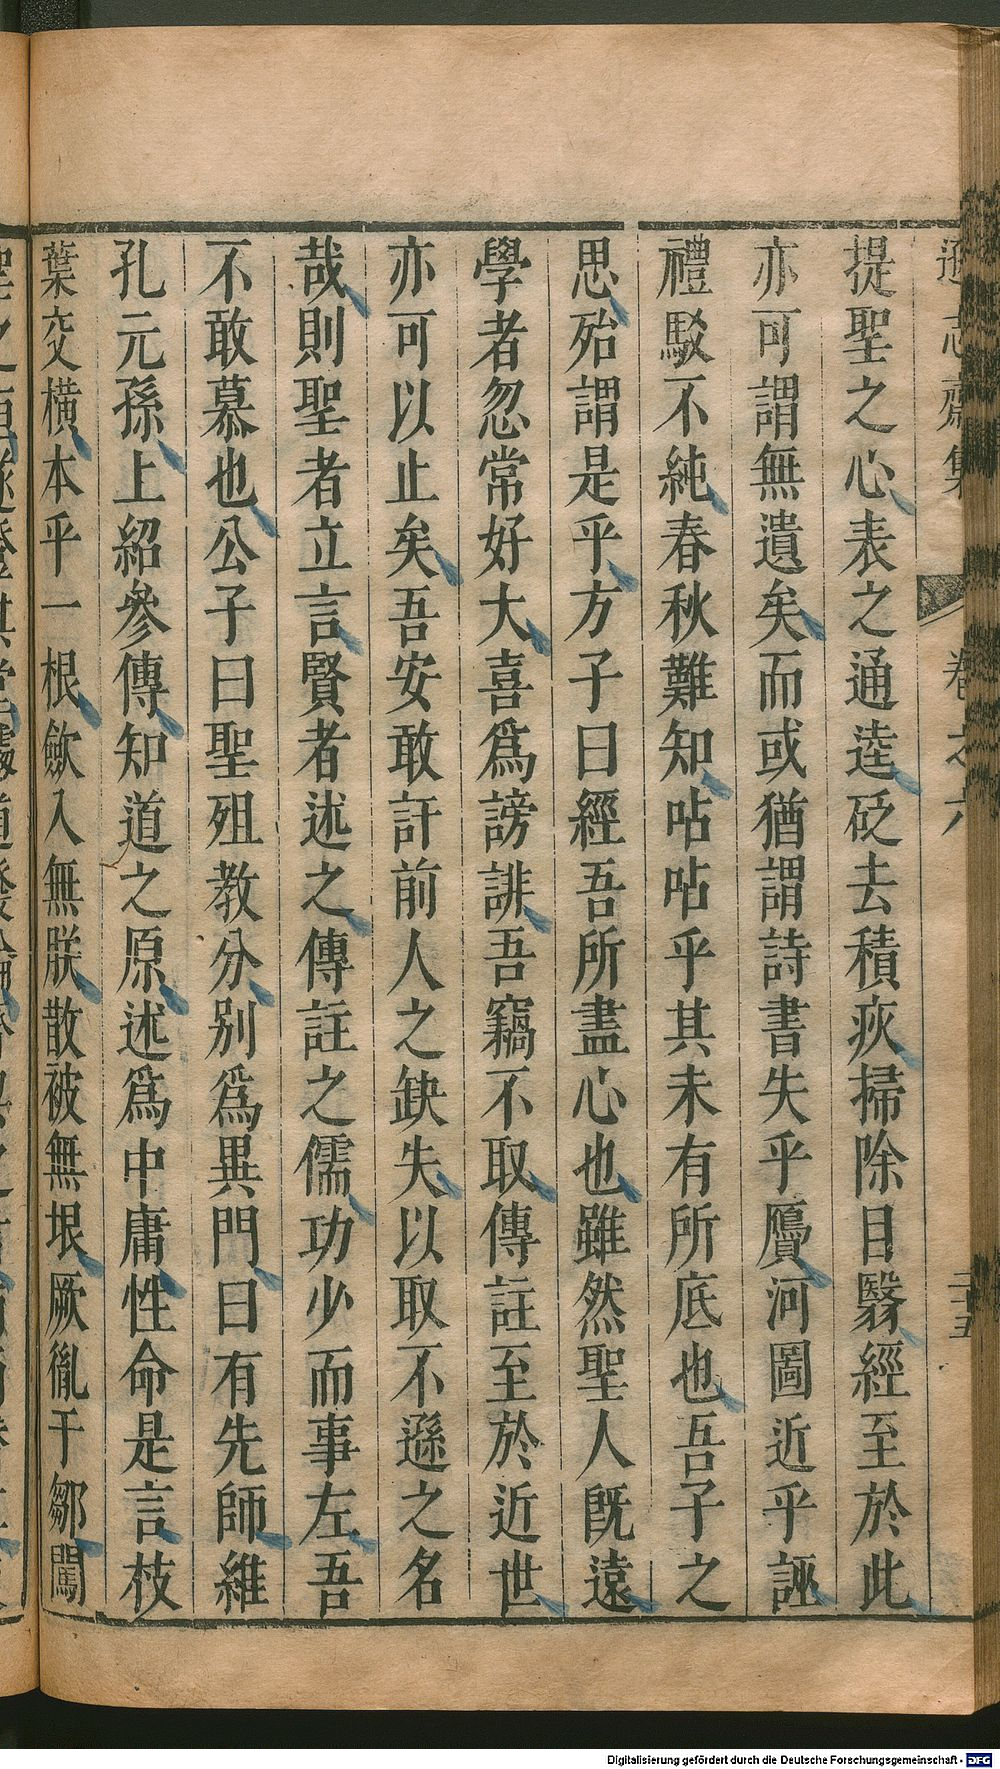 遜志齋集 卷之六 二十五
提聖之心表之通逵砭去積疚掃除目翳經至於此
亦可謂無遺矣而或猶謂詩書失乎贗河圖近乎誣
禮駁不純春秋難知呫呫乎其未有所底也吾子之
思殆謂是乎方子曰經吾所盡心也雖然聖人旣遠
學者忽常好大喜爲謗誹吾竊不取傳註至於近世
亦可以止矣吾安敢訐前人之缺失以取不遜之名
哉則聖者立言賢者述之傳註之儒功少而事左吾
不敢慕也公子曰聖殂教分別爲異門曰有先師維
孔元孫上紹參傳知道之原述爲中庸性命是言枝
葉交橫本乎一根歛入無朕散被無垠厥胤于鄒闖
Digitalisierung gefördert durch die Deutsche Forschungsgemeinschaft - DFG